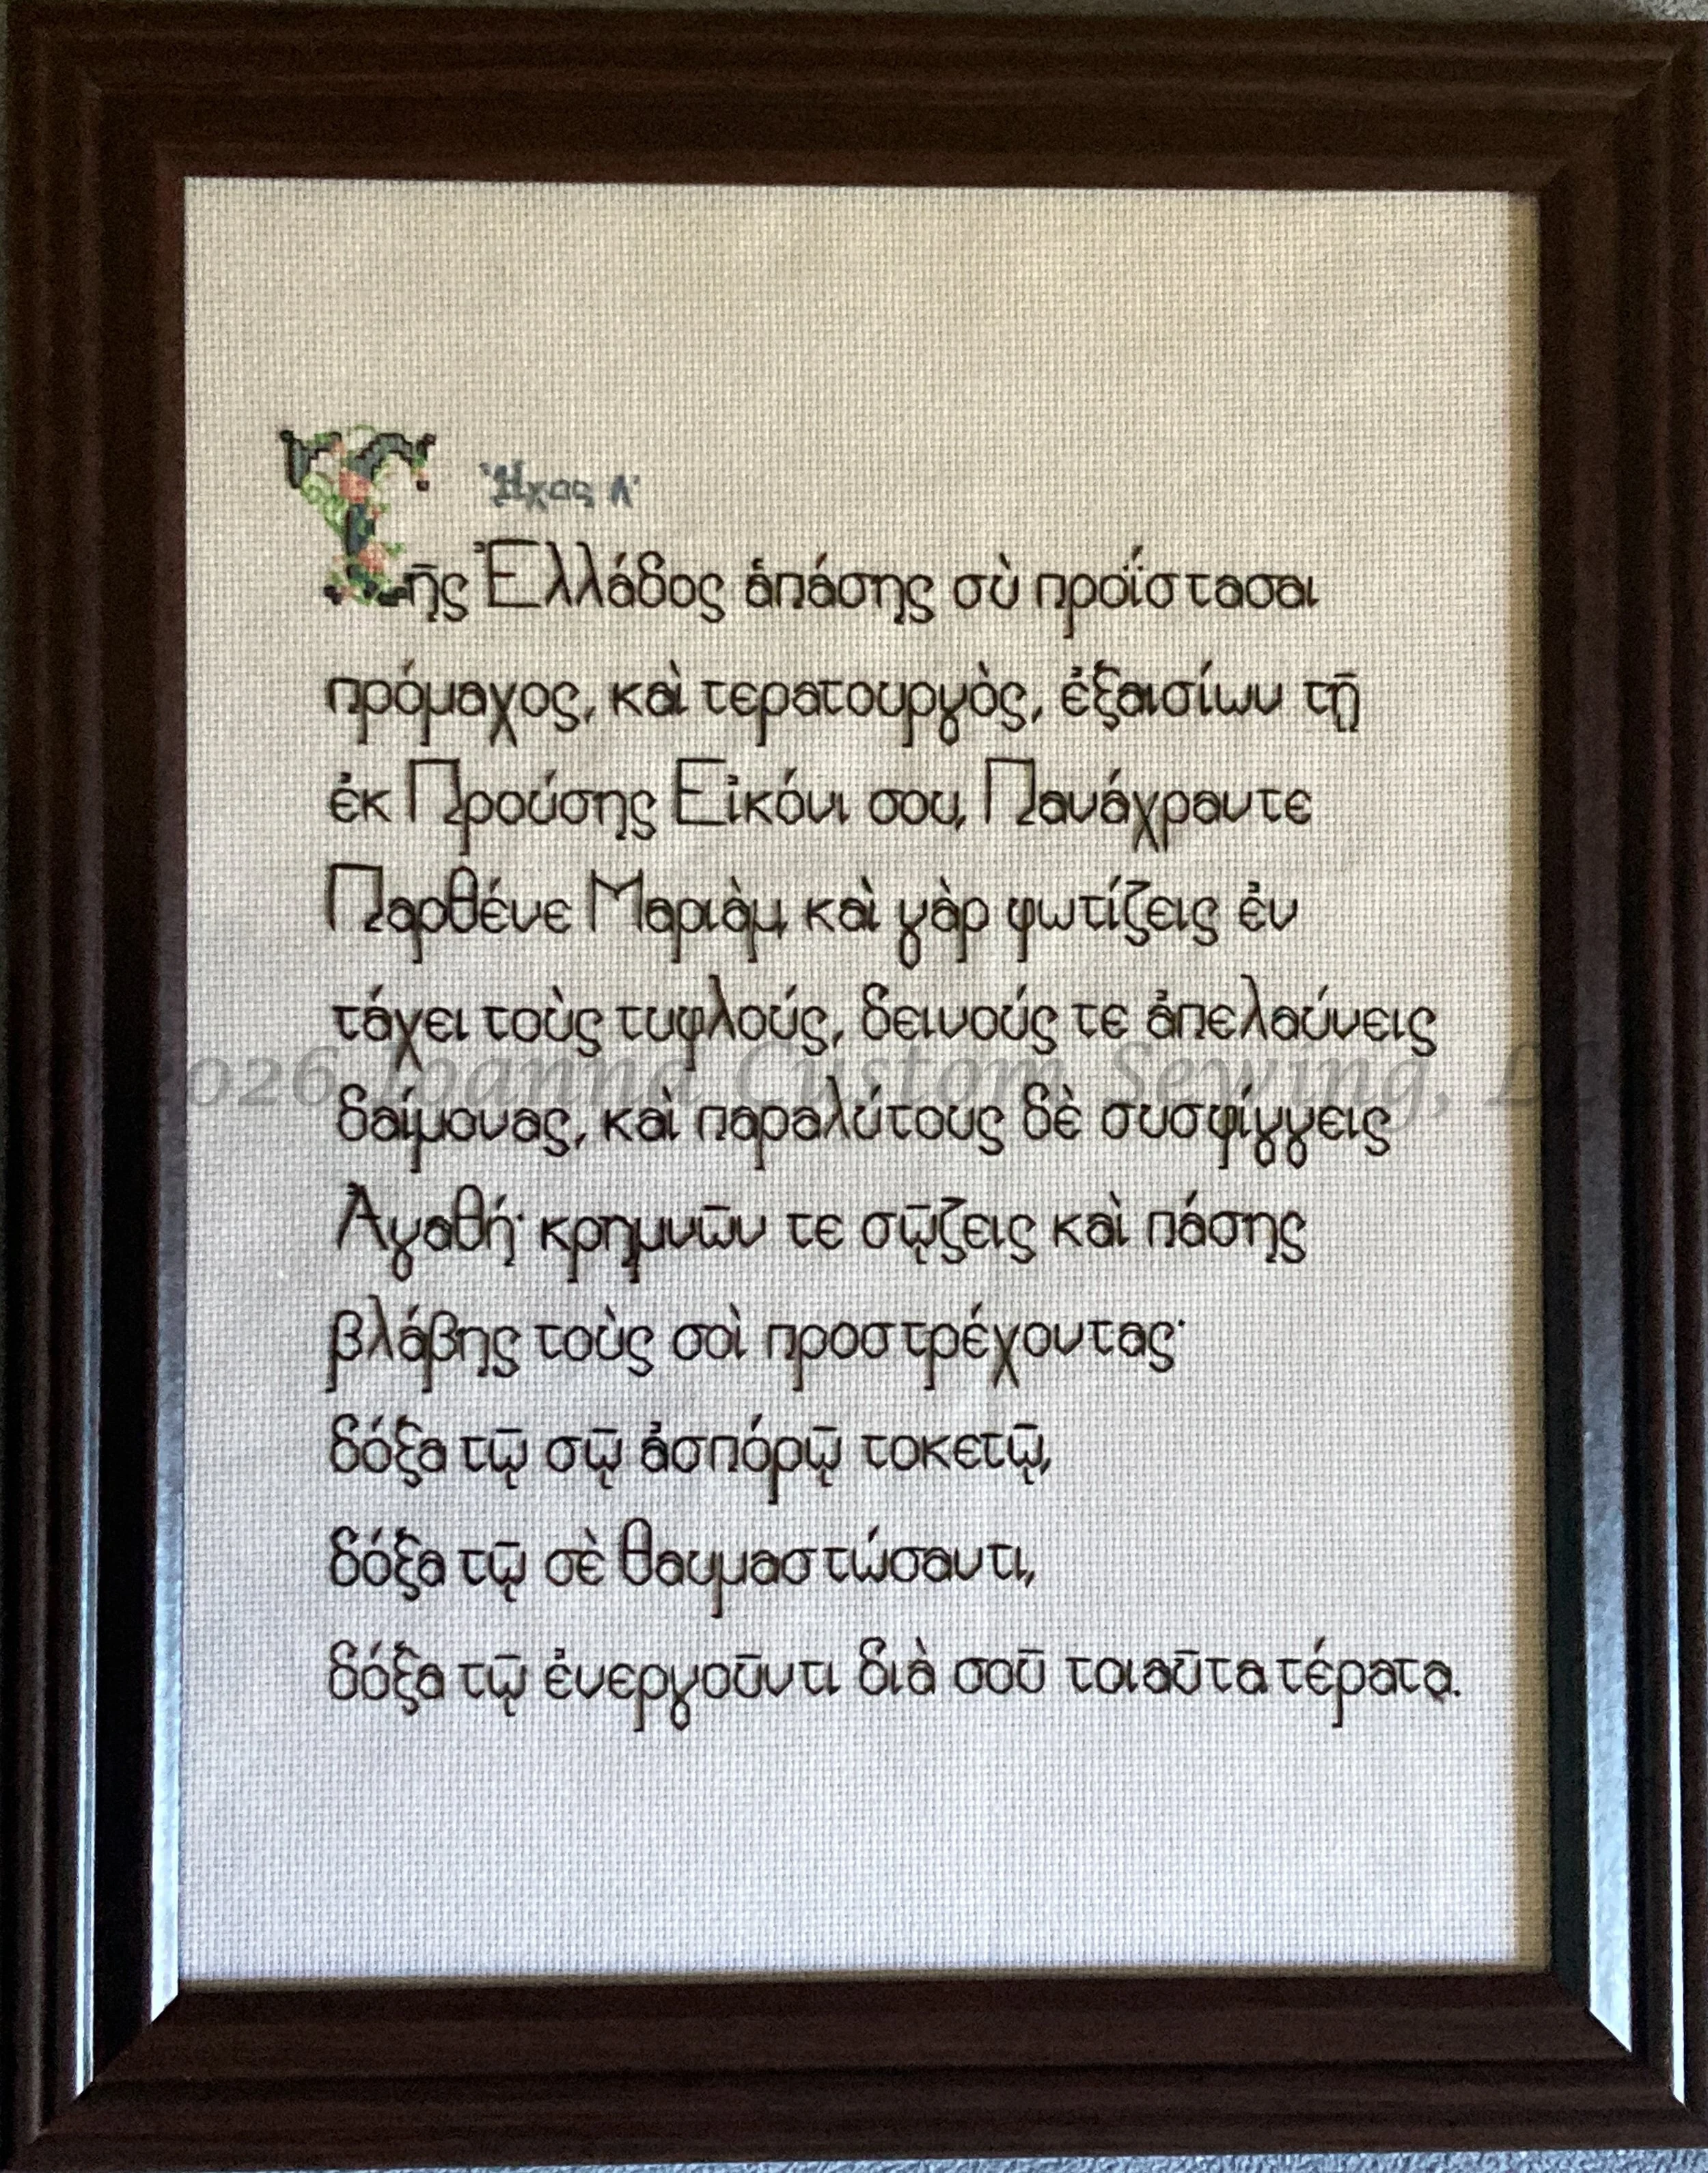 Ἦχος Α΄
Τῆς Ἑλλάδος ἁπάσης σὺ προΐστασαι
πρόμαχος, καὶ τερατουργὸς, ἐξαισίων τῇ
ἐκ Προύσης Εἰκόνι σου, Πανάχραντε
Παρθένε Μαριὰμ, καὶ γὰρ φωτίζεις ἐν
τάχει τοὺς τυφλούς, δεινούς τε ἀπελαύνεις
2026 Ioanna Custom Sewing, LLC
δαίμονας, καὶ παραλύτους δὲ συσφίγγεις
Ἀγαθή· κρημνῶν τε σῷζεις καὶ πάσης
βλάβης τοὺς σοὶ προστρέχοντας·
δόξα τῷ σῷ ἀσπόρῷ τοκετῷ,
δόξα τῷ σὲ θαυμαστώσαντι,
δόξα τῷ ἐνεργοῦντι διὰ σοῦ τοιαῦτα τέρατα.